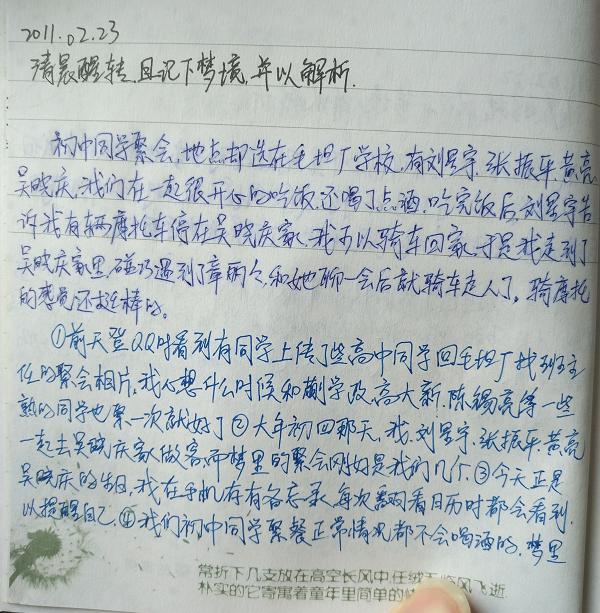 2011.02.23
清晨醒转，且记下梦境，并以解析.
初中同学聚会，地点却选在毛坦厂学校，有刘星宇，张振华，黄亮
吴晓庆，我们在一起很开心的吃饭，还喝了点酒，吃完饭后，刘星宇告
诉我有辆摩托车停在吴晓庆家，我可以骑车回家，于是我走到了
吴晓庆家里，碰巧遇到了章丽，和她聊一会后就骑车走人了，骑摩托
的感觉还挺棒的。
①前天登QQ时看到有同学上传了些高中同学回毛坦厂找班主
任的聚会相片，我心想什么时候和 高大新，陈锡亮等一些
熟的同学也聚一次就好了②大年初四那天，我，刘星宇，张振华，黄亮
一起去吴晓庆家做客，而梦里的聚会刚好是我们几个.③今天正是
吴晓庆的生日，我在手机存有备忘录，每次翻看日历时都会看到.
以提醒自己.④我们初中同学聚餐正常情况都不会喝酒的，梦里
常折下几支放在高空长风中任绒 风飞逝
朴实的它寓寓着童年里简单的